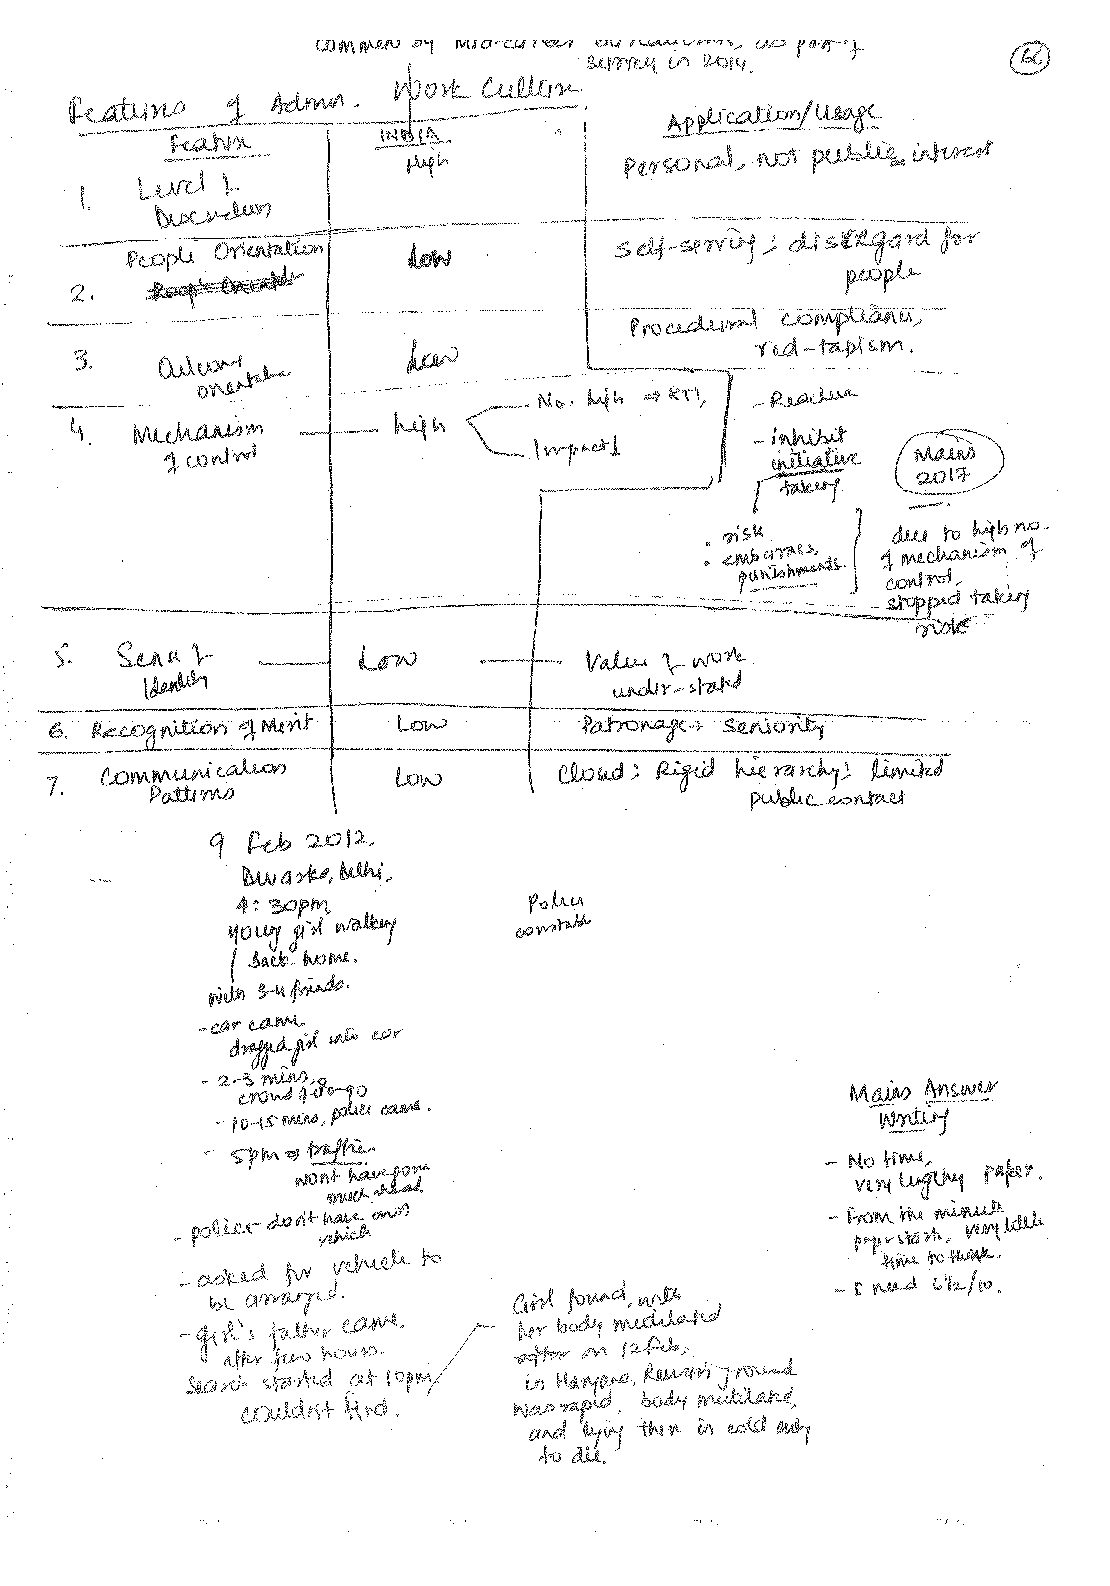 survey in 2014.
62
Features of Admn. Work Culture
Feature
INDIA
Application/Usage
1. Level of Discretion
High
Personal, not public interest
2. People Orientation
Low
Self-serving; disregard for
people
3. Outcome
orientation
Low
Procedural compliance,
red-tapism.
4. Mechanism
of control
high
No. high → RTI,
Impact↓
- Reactive
- inhibit
initiative
taking
• risk
• embarrass,
punishments
Mains
2017
due to high no.
of mechanism of
control,
stopped taking
risk
5. Sense of
Identity
Low
Value of work
under-stated
6. Recognition of Merit
Low
Patronage; Seniority
7. Communication
Patterns
Low
Closed; Rigid hierarchy; limited
public contact
9 Feb 2012,
Dwarka, Delhi,
4:30pm
young girl walking
back home.
with 3-4 friends.
- car came
dragged girl into car
- 2-3 mins,
crowd
- 10-15 mins, police came.
- 5pm → traffic.
wont have gone
much ahead.
- police - don't have own
vehicle
- asked for vehicle to
be arranged.
- girl's father came.
after few hours.
Search started at 10pm,
couldn't find.
Police
constable
Girl found, with
her body mutilated
on 12 Feb,
in Haryana,
was rapid, body mutilated,
and lying there in cold
to die.
Mains Answer
Writing
- No time,
very lengthy paper.
- From the minute
paper starts, very little
time to think.
- I need 6½/10.